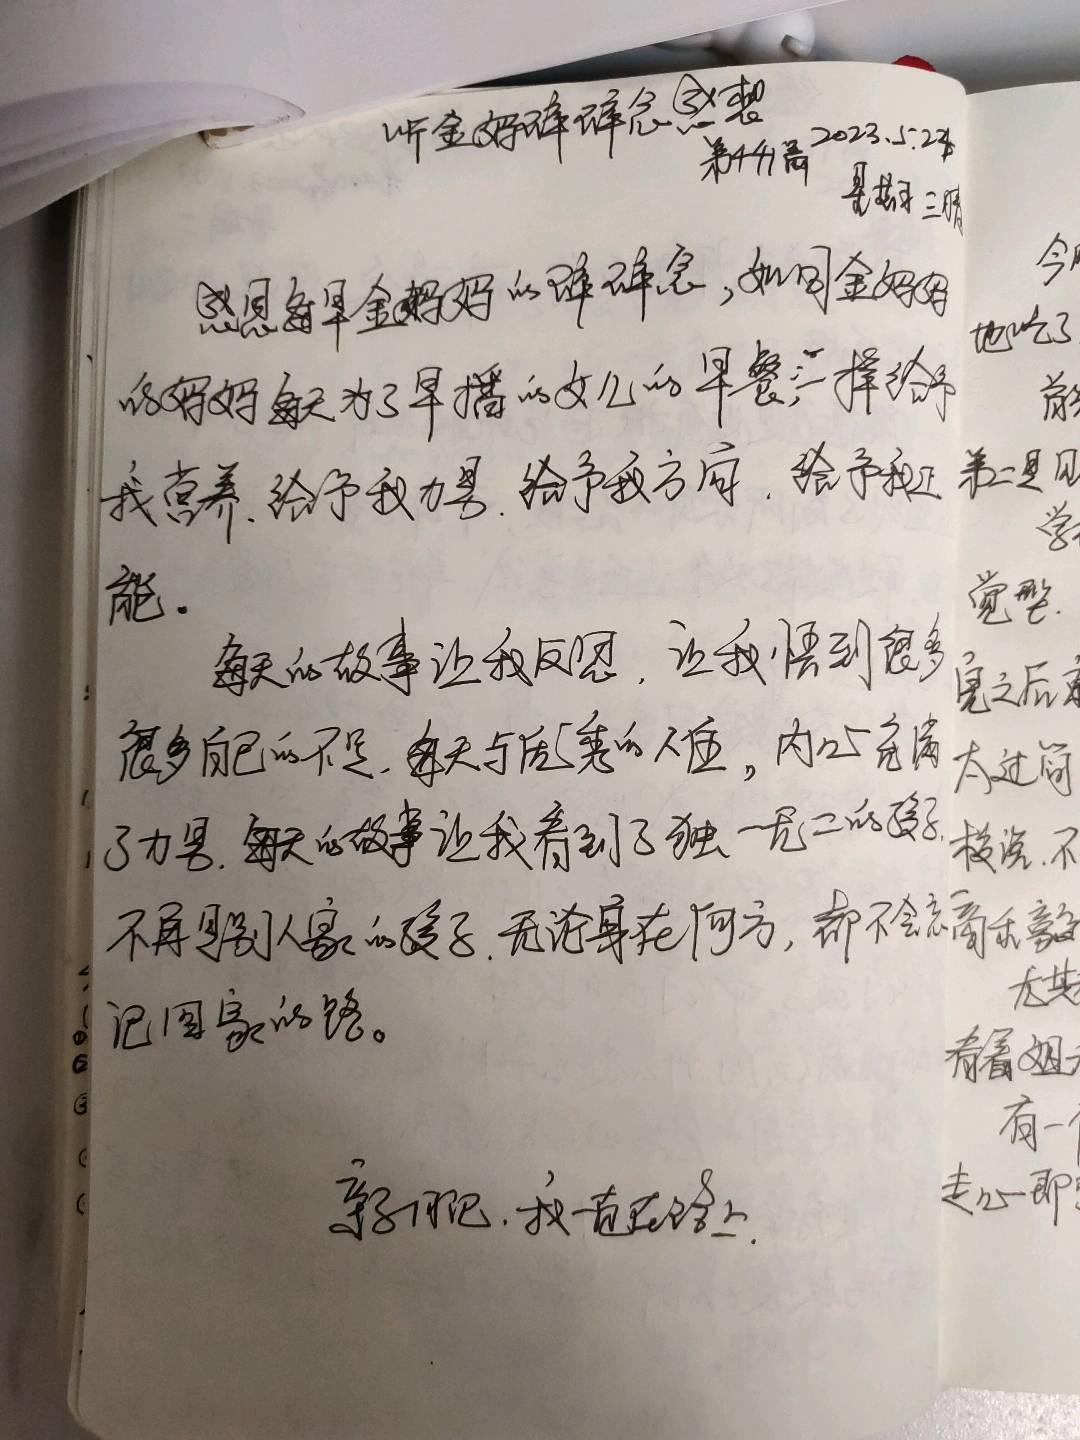 听金妈碎碎念感想
第441篇 2023.5.24
星期三晴
感恩每早金妈妈的碎碎念,如同金妈妈
的妈妈每天为了早播的女儿的早餐,一样给予
我营养、给予我力量、给予我方向、给予我正
能。
每天的故事让我反思,让我悟到很多
很多自己的不足,每天与优秀的人在,内心充满
了力量,每天的故事让我看到了独一无二的孩子,
不再是别人家的孩子,无论身在何方,都不会忘
记回家的路。
亲子日记,我一直在路上.
今
地吃了
第二是
学
觉型.
完之后
太过简
校说.不
商乐
尤其
看着姐
有一个
走心一即